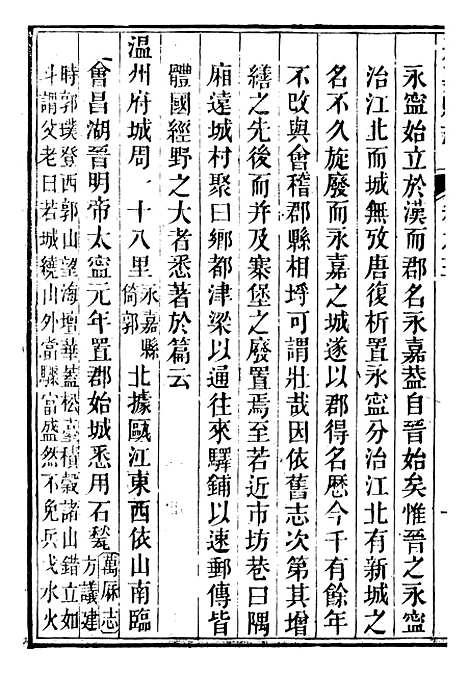 永寍始立於漢而郡名永嘉葢自晉始矣惟晉之永寍
治江北而城無攷唐復析置永寍分治江北有新城之
名不久旋廢而永嘉之城遂以郡得名歴今千有餘年
不改與會稽郡縣相埒可謂壯哉因依舊志次第其增
繕之先後而并及寨堡之廢置焉至若近市坊巷曰隅
廂遠城村聚曰鄉都津梁以通往來驛鋪以速郵傳皆
體國經野之大者悉著於篇云
温州府城周一十八里永嘉縣倚郭北據甌江東西依山南臨
會昌湖晉明帝太寍元年置郡始城悉用石甃萬厤志方議建
時郭璞登西郭山望海壇華葢松臺積穀諸山錯立如
斗謂父老曰若城繞山外當驟富盛然不免兵戈水火